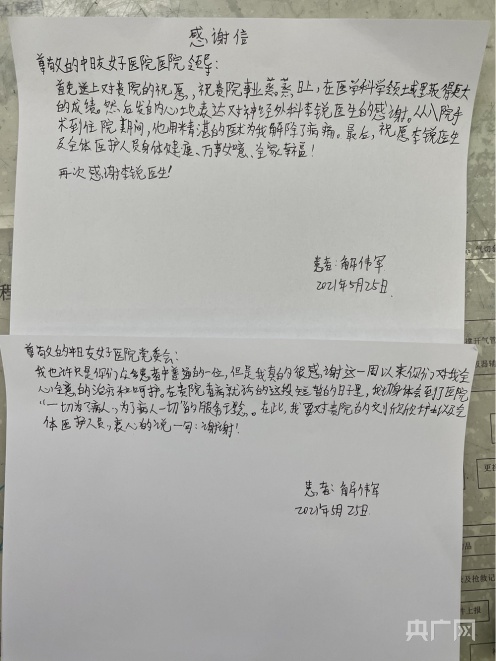 感谢信
尊敬的中日友好医院医院领导:
首先送上对贵院的祝愿,祝贵院事业蒸蒸日上,在医学科学领域里取得巨大
的成绩。然后发自内心地表达对神经外科李锐医生的感谢。从入院手
术到住院期间,他用精湛的医术为我解除了病痛。最后,祝愿李锐医生
及全体医护人员身体健康、万事如意、全家幸福!
再次感谢李锐医生!
患者:解伟军
2021年5月25日
尊敬的中日友好医院党委会:
我也许只是你们众多患者中普通的一位,但是我真的很感谢这一周以来你们对我全
心全意的治疗和呵护。在贵院看病就诊的这段短暂的日子里,我切身体会到了医院
“一切为了病人,为了病人一切”的服务主题。在此,我要对贵院的刘欣欣护士以及全
体医护人员,衷心的说一句:谢谢!
患者:解伟军
2021年5月25日
程
更换
品
及抢救记
件上报
央广网